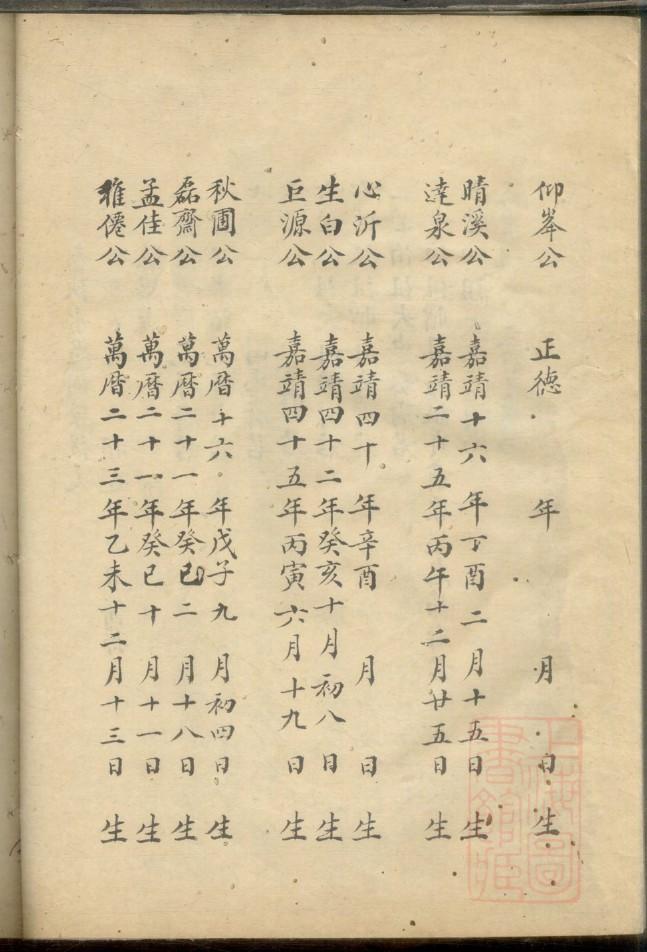 仰峯公 正德 年 月 日生
晴溪公 嘉靖十六年丁酉二月十五日生
達泉公 嘉靖二十五年丙午十二月廿五日生
心沂公 嘉靖四十年辛酉 月 日生
生白公 嘉靖四十二年癸亥十月初八日生
巨源公 嘉靖四十五年丙寅六月十九日生
秋圃公 萬曆十六年戊子九月初四日生
磊齋公 萬曆二十一年癸巳二月十八日生
孟佳公 萬曆二十一年癸巳十月十一日生
雅僊公 萬曆二十三年乙未十二月十三日生
上海圖書館藏